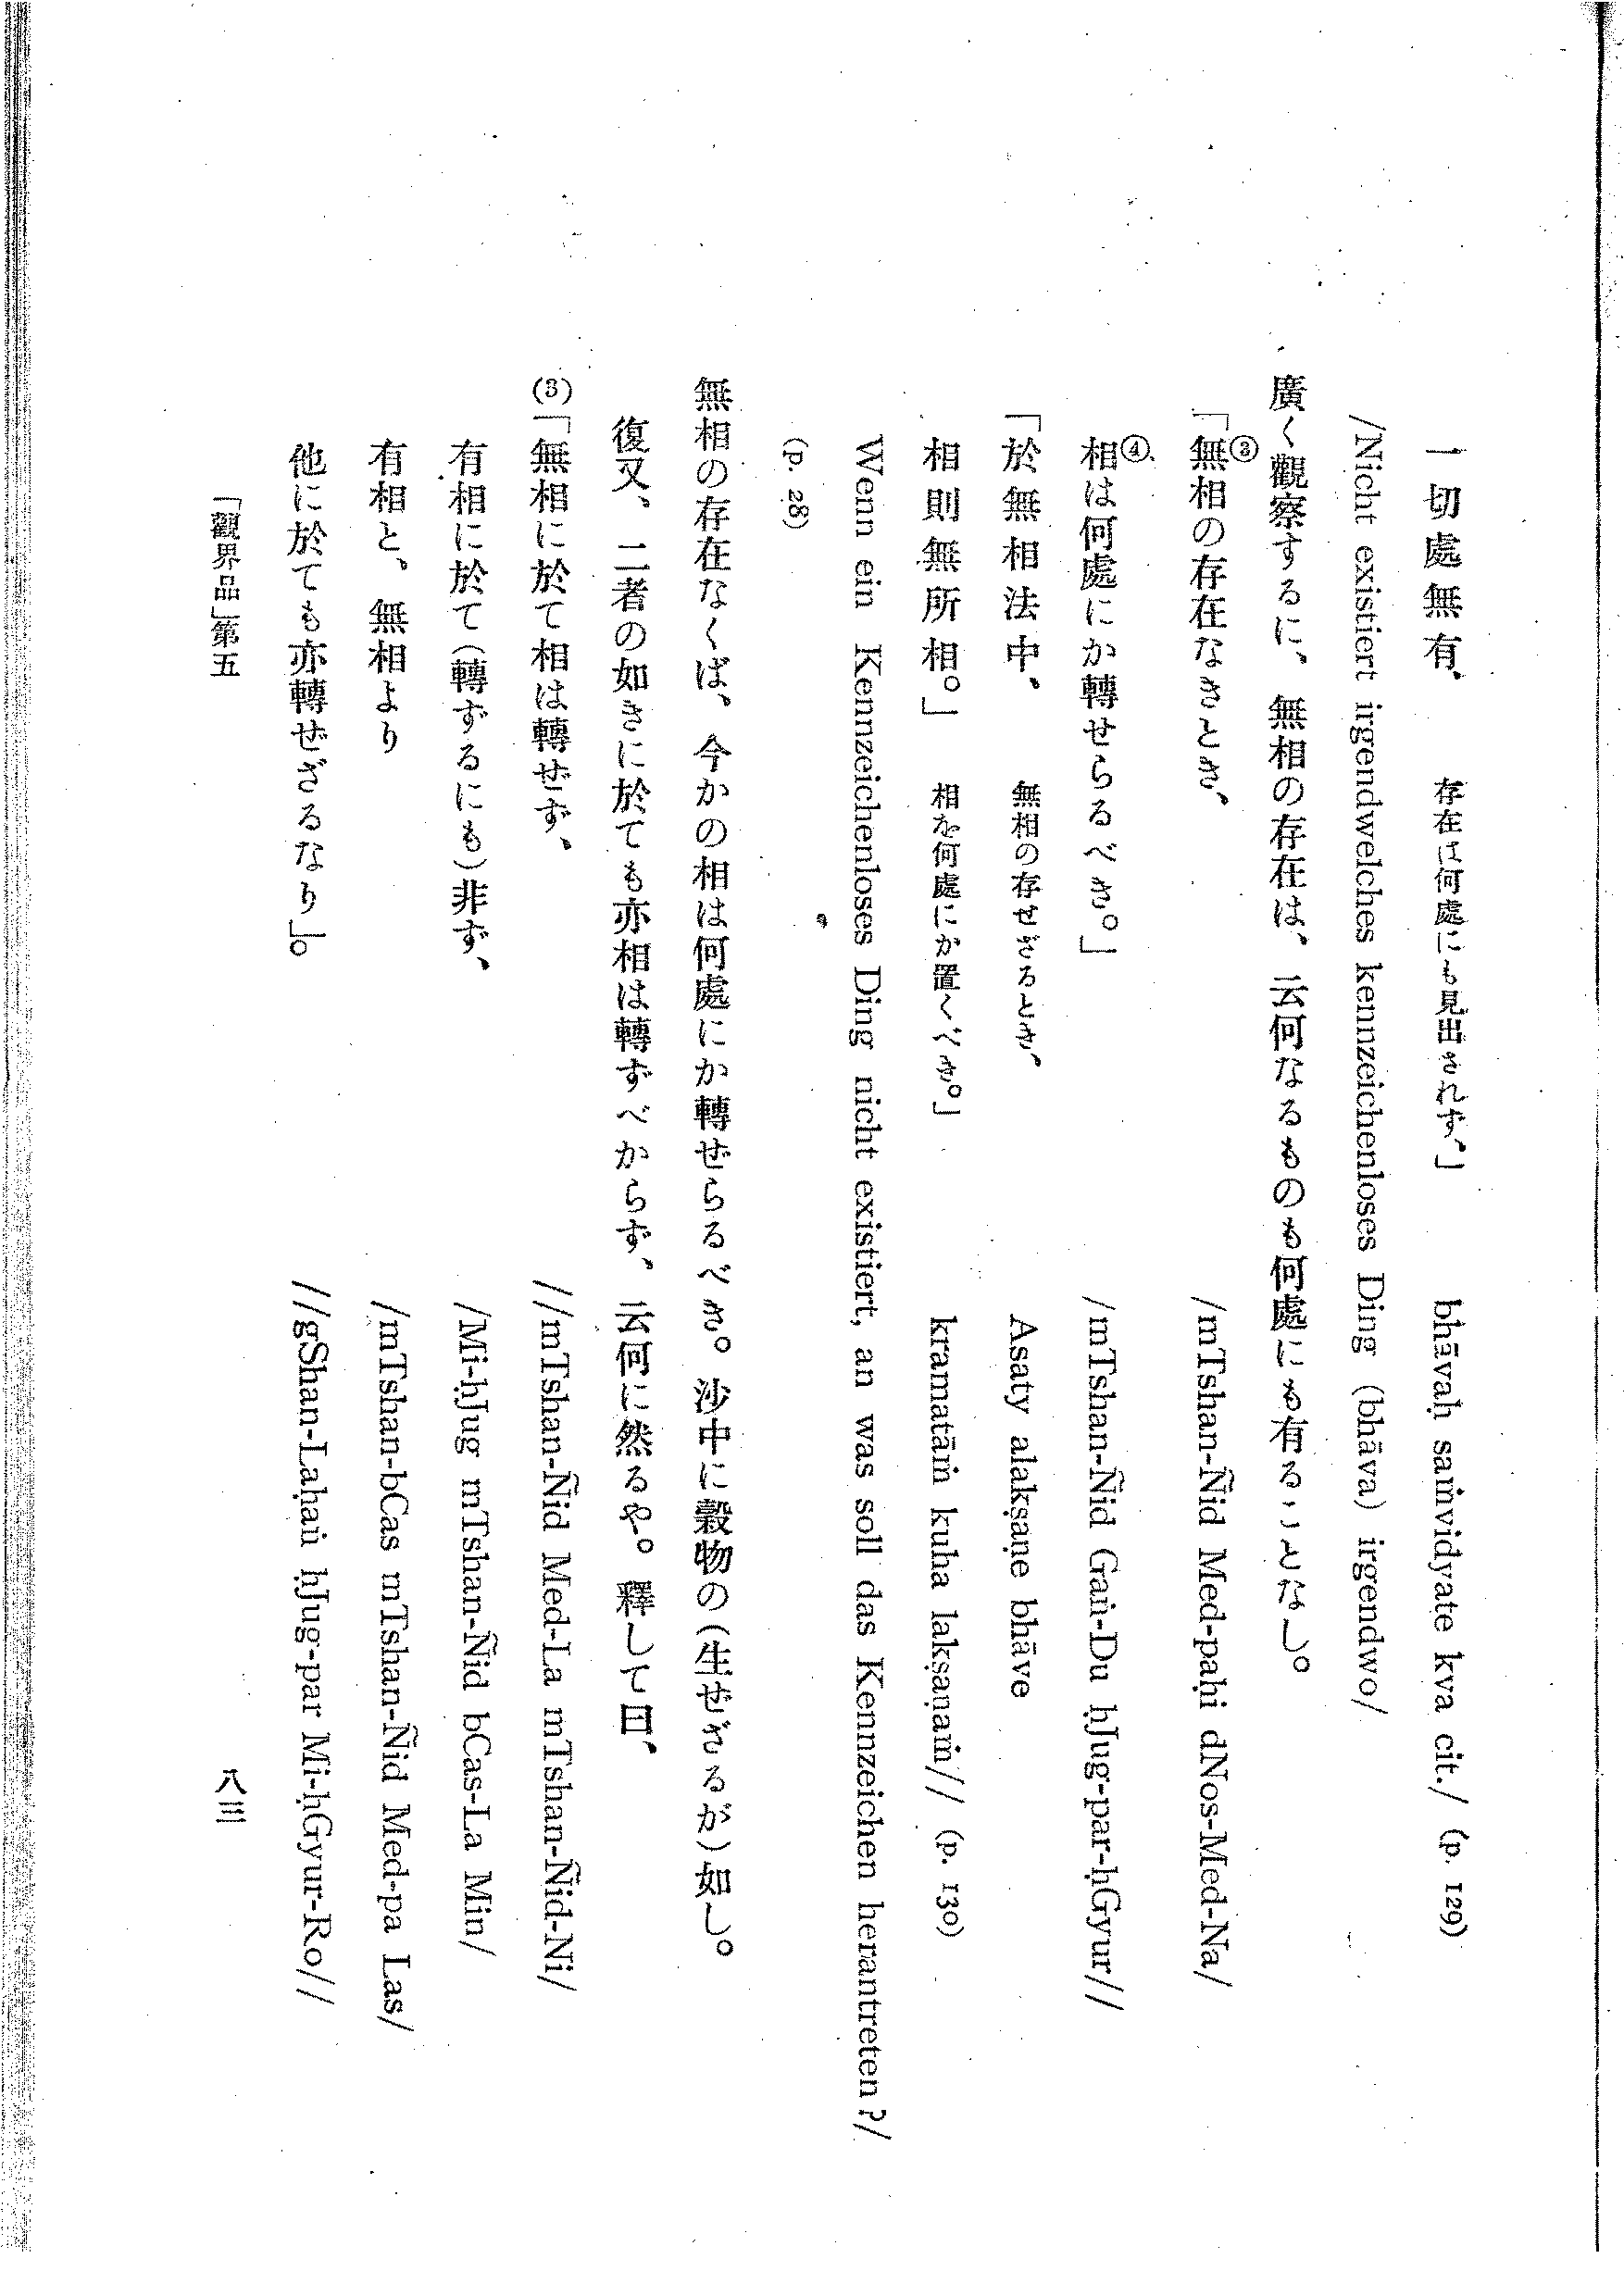 一切處無有、 存在は何處にも見出されず、」 bhāvaḥ saṁvidyate kva cit./ (p. 129)
/Nicht existiert irgendwelches kennzeichenloses Ding (bhāva) irgendwo/
廣く觀察するに、無相の存在は、云何なるものも何處にも有ることなし。
「③無相の存在なきとき、 /mTshan-Ñid Med-paḥi dNos-Med-Na/
④相は何處にか轉せらるべき。」 /mTshan-Ñid Gaṅ-Du ḥJug-par-ḥGyur//
「於無相法中、 無相の存せざるとき、 Asaty alakṣaṇe bhāve
相則無所相。」 相を何處にか置くべき。」 kramatāṁ kuha lakṣaṇaṁ// (p. 130)
Wenn ein Kennzeichenloses Ding nicht existiert, an was soll das Kennzeichen herantreten?/
(p. 28)
無相の存在なくば、今かの相は何處にか轉せらるべき。沙中に穀物の(生ぜざるが)如し。
復又、二者の如きに於ても亦相は轉ずべからず、云何に然るや。釋して曰、
(3)「無相に於て相は轉ぜず、 //mTshan-Ñid Med-La mTshan-Ñid-Ni/
有相に於て(轉ずるにも)非ず、 /Mi-ḥJug mTshan-Ñid bCas-La Min/
有相と、無相より /mTshan-bCas mTshan-Ñid Med-pa Las/
他に於ても亦轉ぜざるなり」。 //gShan-Laḥaṅ ḥJug-par Mi-ḥGyur-Ro//
「觀界品」第五 八三